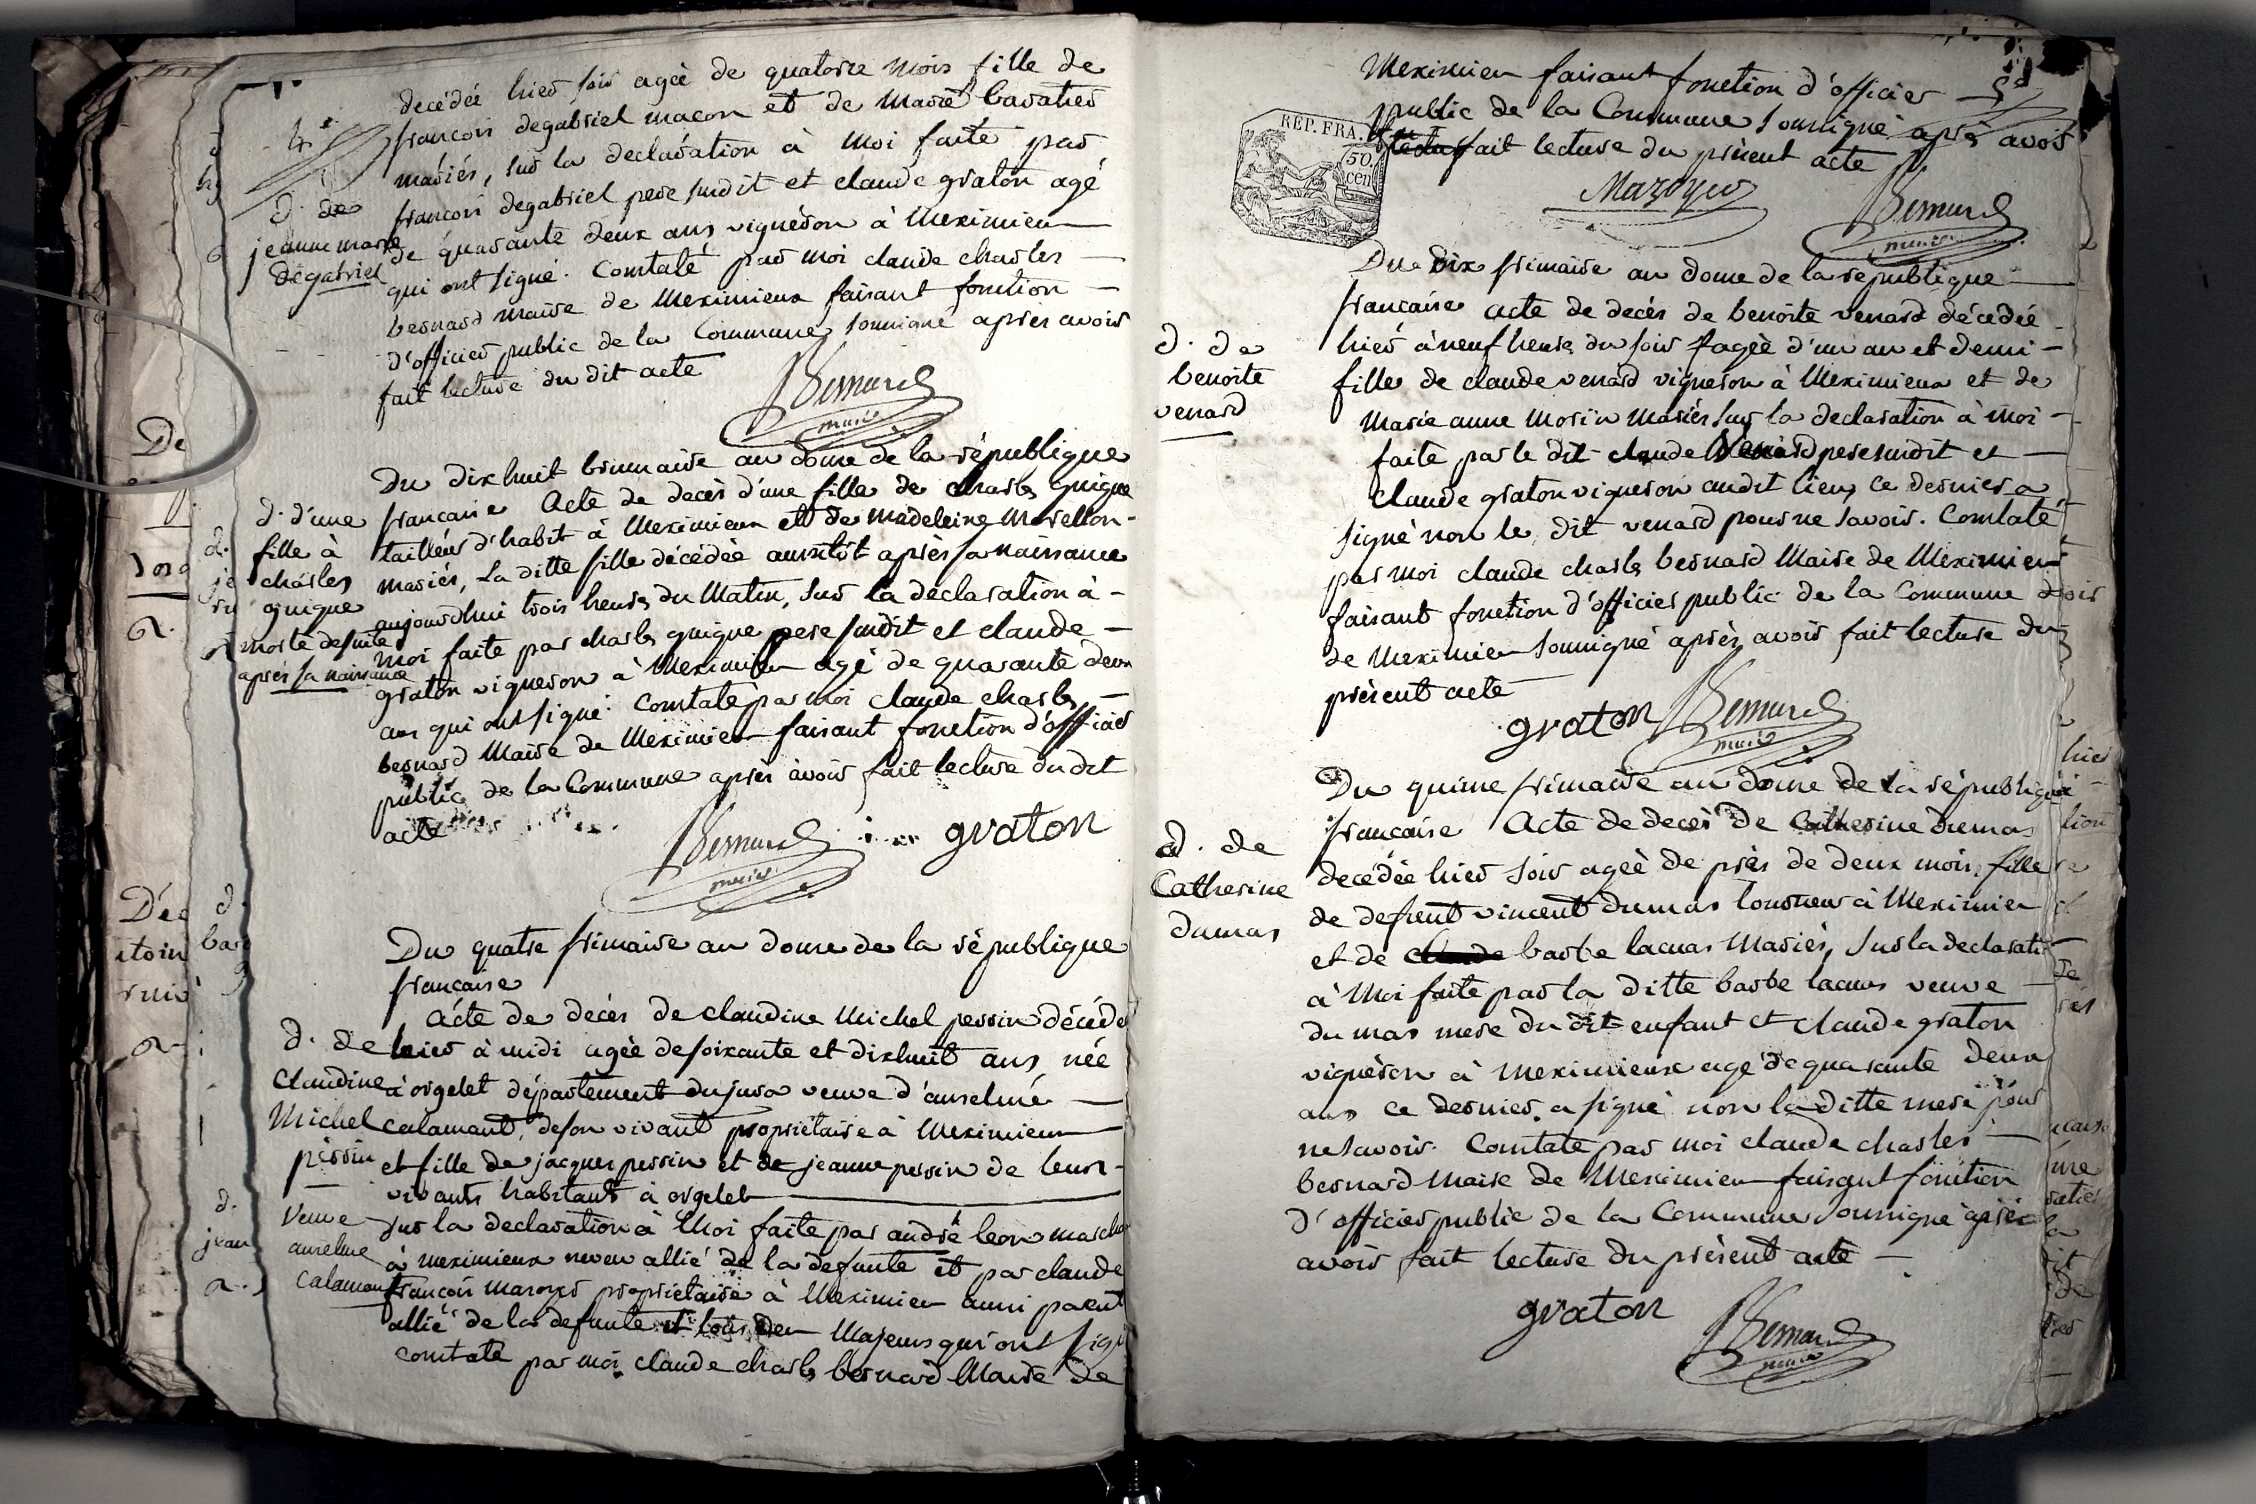 decédée hier soir ageè de quatorze mois fille de
françois degabriel maçon et de Marie
mariés, sur la declaration à moi faite par
françois degabriel pere susdit et claude graton agé
de quarante deux ans vigneron à Meximieux
qui ont signé. Constaté par moi claude charles
bernard maire de Meximieux faisant fonction
d'officier public de la Commune soussigné après avoir
fait lecture du dit acte
d. de
jeanne marie
degabriel
Bernard
maire
Du dixhuit brumaire an douze de la république
française Acte de decès d'une fille de charles guigue
tailleur d'habit à Meximieux et de madeleine Morellon
mariés, La ditte fille décédée aussitôt après sa naissance
aujourdhui trois heures du Matin, sur la declaration à
moi faite par charles guigue pere susdit et claude
graton vigneron à Meximieux agé de quarante deux
ans qui ont signé. Constaté par moi claude charles
bernard Maire de Meximieux faisant fonction d'officier
public de la Commune après avoir fait lecture du dit
acte
d. d'une
fille à
charles
guigue
morte de suite
après sa naissance
Bernard
maire
graton
Du quatre frimaire an douze de la république
française
Acte de decès de claudine Michel perrin décédé
hier à midi agée de soixante et dixhuit ans, née
à orgelet département du jura veuve d'anselme
calamant, de son vivant propriétaire à Meximieux
et fille de jacques perrin et de jeanne perrin de leur
vivants habitants à orgelet
sur la declaration à Moi faite par andré leon
à meximieux neveu allié de la defunte et par claude
françois mazoyer propriétaire à Meximieux aussi parent
allié de la defunte et tous deux Majeurs qui ont signé
constaté par moi claude charles bernard Maire de
d. de
Claudine
Michel
perrin
veuve
anselme
Calamant
Meximieux faisant fonction d'officier
public de la Commune soussigné après avoir
fait lecture du présent acte
REP. FRA.
50.
cen
Mazoyer
Bernard
maire
Du dix frimaire an douze de la republique
française acte de decès de benoîte venard décedée
hier à neuf heures du soir agèe d'un an et demi
fille de claude venard vigneron à Meximieux et de
Marie anne Morin mariés sur la declaration à moi
faite par le dit claude Venard pere susdit et
claude graton vigneron audit lieu, ce dernier a
signé non le dit venard pour ne savoir. Constaté
par moi claude charles bernard Maire de Meximieux
faisant fonction d'officier public de la Commune
de Meximieux soussigné après avoir fait lecture du
présent acte
d. de
benoite
venard
graton
Bernard
maire
Du quinze frimaire an douze de la république
française Acte de decès de Catherine dumas
decédée hier soir ageè de près de deux mois, fille
de defunt vincent dumas tourneur à Meximieux
et de barbe lacuas Mariés, sur la declaration
à Moi faite par la ditte barbe lacuas veuve
dumas mere du dit enfant et claude graton
vigneron à meximieux agé de quarante deux
ans ce dernier a signé non la ditte mere pour
ne savoir. Constaté par moi claude charles
bernard Maire de Meximieux faisant fonction
d'officier public de la Commune soussigné après
avoir fait lecture du présent acte
d. de
Catherine
dumas
graton
Bernard
maire